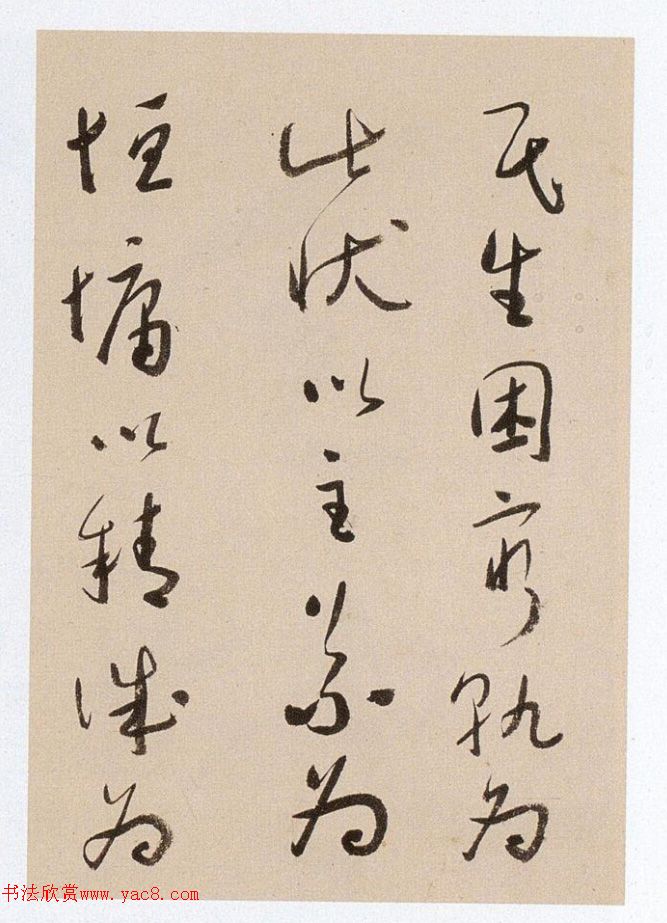 民生困窮孰為
此狀以主義為
垣墉以精誠為
书法欣赏www.yac8.com